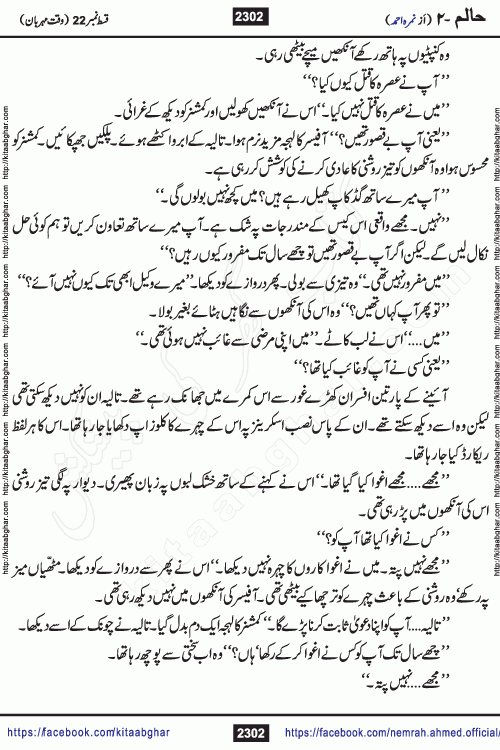 حالم -۲ (از نمرہ احمد)
2302
قسط نمبر 22 (وقت مہربان)
وہ کنپٹیوں پہ ہاتھ رکھے آنکھیں میچے بیٹھی رہی۔
’’آپ نے عصرہ کا قتل کیوں کیا؟‘‘
’’میں نے عصرہ کا قتل نہیں کیا۔‘‘ اس نے آنکھیں کھولیں اور کمشنر کو دیکھ کے غرائی۔
’’یعنی آپ بے قصور تھیں؟‘‘ آفیسر کا لہجہ مزید نرم ہوا۔ تالیہ کے ابرو اکٹھے ہوئے۔ پلکیں جھپکائیں۔ کمشنر کو
محسوس ہوا وہ آنکھوں کو تیز روشنی کا عادی کرنے کی کوشش کر رہی ہے۔
’’آپ میرے ساتھ گڈ کاپ کھیل رہے ہیں؟ میں کچھ نہیں بولوں گی۔‘‘
’’نہیں۔ مجھے واقعی اس کیس کے مندرجات پہ شک ہے۔ آپ میرے ساتھ تعاون کریں تو ہم کوئی حل
نکال لیں گے۔ لیکن اگر آپ بے قصور تھیں تو چھے سال تک مفرور کیوں رہیں؟‘‘
’’میں مفرور نہیں تھی۔‘‘ وہ تیزی سے بولی۔ پھر دروازے کو دیکھا۔ ’’میرے وکیل ابھی تک کیوں نہیں آئے؟‘‘
’’تو پھر آپ کہاں تھیں؟‘‘ وہ اس کی آنکھوں سے نگاہیں ہٹائے بغیر بولا۔
’’میں....‘‘ اس نے لب کاٹے۔ ’’میں اپنی مرضی سے غائب نہیں ہوئی تھی۔‘‘
’’یعنی کسی نے آپ کو غائب کیا تھا؟‘‘
آئینے کے پار تین افسران کھڑے غور سے اس کمرے میں جھانک رہے تھے۔ تالیہ ان کو نہیں دیکھ سکتی تھی
لیکن وہ اسے دیکھ سکتے تھے۔ ان کے پاس نصب اسکرینز پہ اس کے چہرے کا کلوز اپ دکھایا جا رہا تھا۔ اس کا ہر لفظ
ریکارڈ کیا جا رہا تھا۔
’’مجھے.... مجھے اغوا کیا گیا تھا۔‘‘ اس نے کہنے کے ساتھ خشک لبوں پہ زبان پھیری۔ دیوار پہ لگی تیز روشنی
اس کی آنکھوں میں پڑ رہی تھی۔
’’کس نے اغوا کیا تھا آپ کو؟‘‘
’’مجھے نہیں پتہ۔ میں نے اغوا کاروں کا چہرہ نہیں دیکھا۔‘‘ اس نے پھر سے دروازے کو دیکھا۔ مٹھیاں میز
پہ رکھے وہ روشنی کے باعث چہرے کو ترچھا کیے بیٹھی تھی۔ آفیسر کی آنکھوں میں نہیں دیکھ رہی تھی۔
’’تالیہ.... آپ کو اپنا دعویٰ ثابت کرنا پڑے گا۔‘‘ کمشنر کا لہجہ ایک دم بدل گیا۔ تالیہ نے چونک کے اسے دیکھا۔
’’چھے سال تک آپ کو کس نے اغوا کر کے رکھا‘ ہاں؟‘‘ وہ اب سختی سے پوچھ رہا تھا۔
’’مجھے.... نہیں پتہ۔‘‘
https://facebook.com/kitaabghar
2302
https://facebook.com/nemrah.ahmed.official/